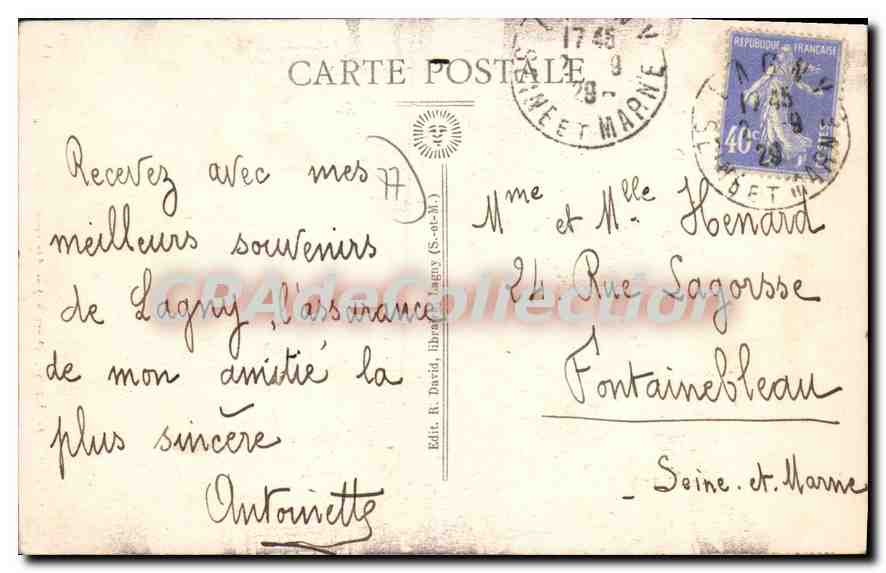 CARTE POSTALE
17 45
2 - 9
29 -
SEINE ET MARNE
REPUBLIQUE FRANÇAISE
40c
POSTES
LAGNY
17 45
2 - 9
29
SEINE ET MARNE
77
Recevez avec mes
meilleurs souvenirs
de Lagny, l'assurance
de mon amitié la
plus sincère
Antoinette
Edit. R. David, libraire, Lagny (S.-et-M.)
CPAdeCollection
Mme et Mlle Henard
24 Rue Lagorsse
Fontainebleau
Seine-et-Marne